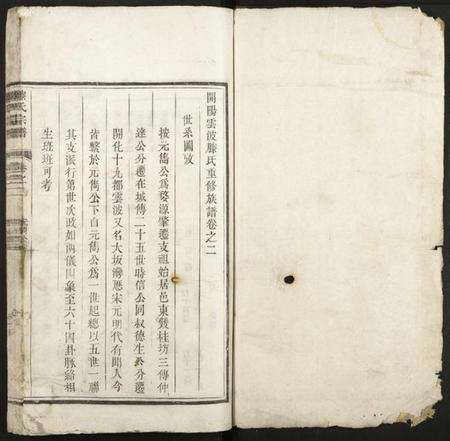 開陽雲波滕氏重修族譜卷之二
世系圖攷
按元雋公為婺源肇遷支祖始居邑東雙桂坊三傳仲
達公分遷在城傳二十五世時信公同叔德生公分遷
開化十九都雲波又名大坂灣歷宋元明代有聞人今
皆繫於元雋公下自元雋公為一世起總以五世一聯
其支派行第世次政如兩儀四象至六十四卦脈絡相
生班班可考
滕氏宗譜